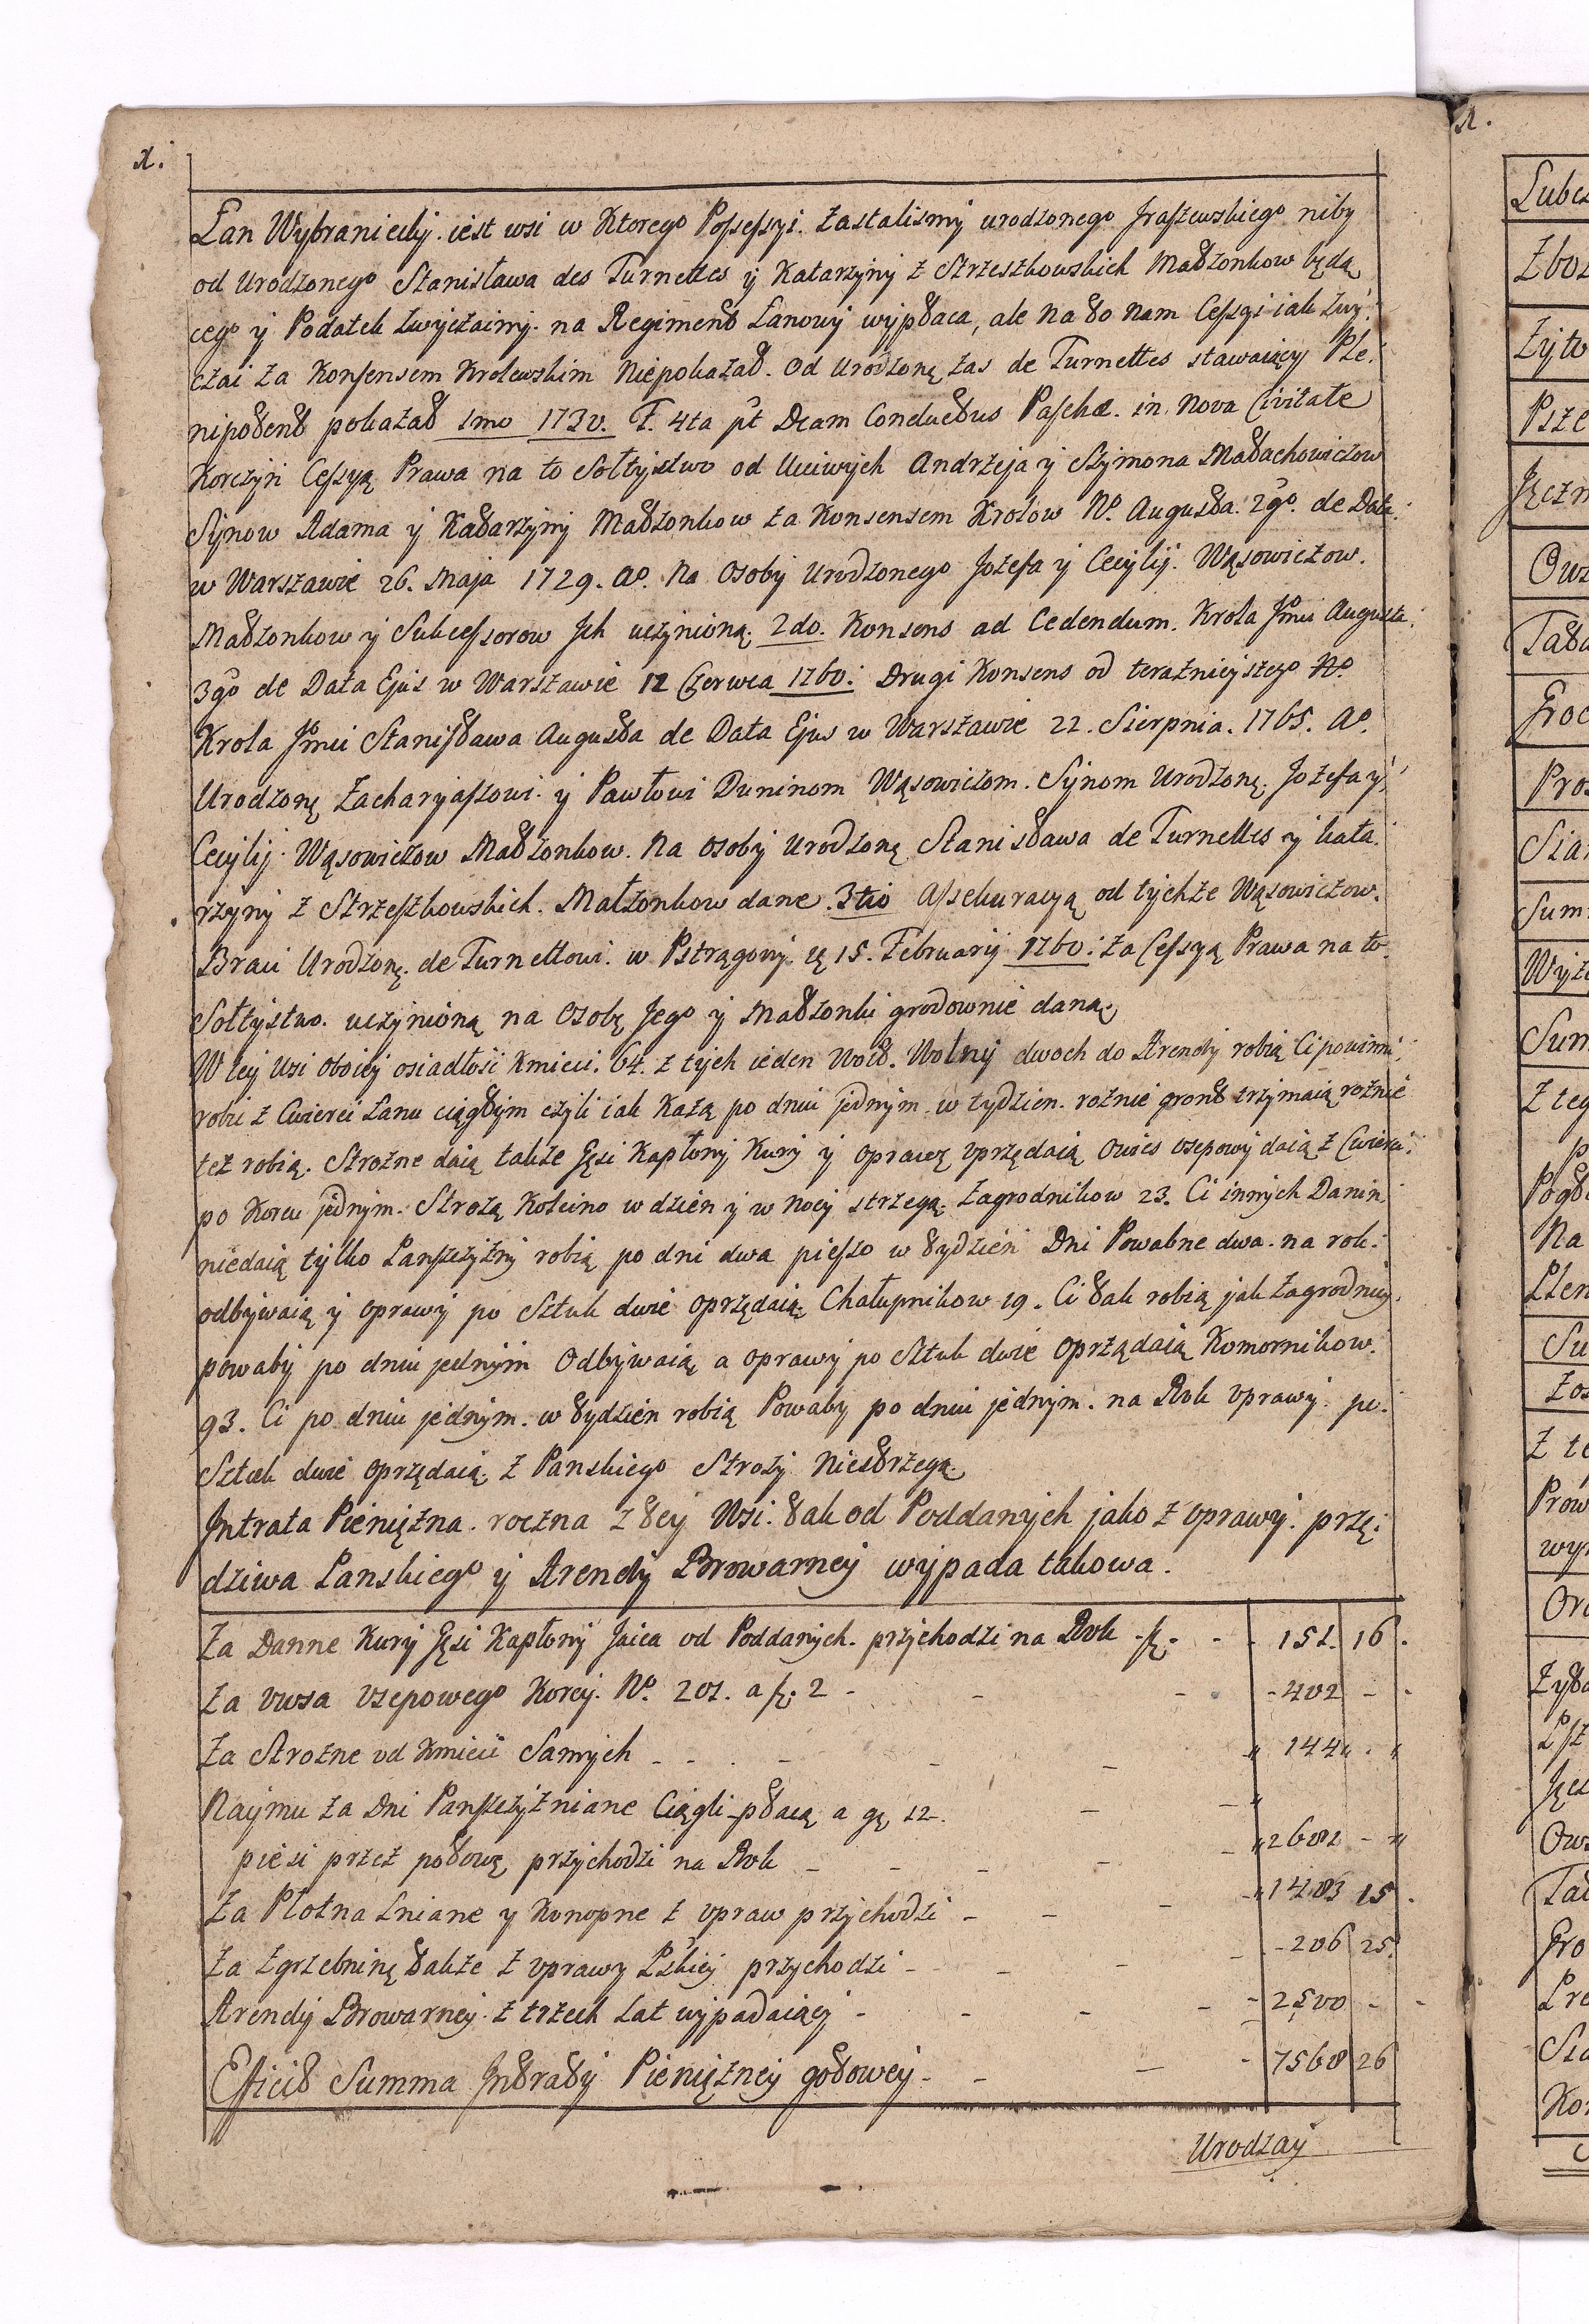 x.
Łan Wybraniecky. iest wsi w Ktorego Possessyi. zastalismy urodzonego Jraszewskiego niby
od Urodzonego Stanisława des Turnelles y Katarzyny z Strzeszkowskich Małzonkow będą
cego y Podatek zwyczainy. na Regiment Łanowy wypłaca, ale na to nam Cessyi iak zwy:
czai za Konsensem Krolewskim Niepokazał. Od Urodzonę zas de Turnettes stawaiący Ple:
nipotent pokazał 1mo 1730. F. 4ta pt Dcam Conductus Paschæ. in Nova Civitate
Korczyn Cessyą Prawa na to Sołtystwo od Uciwych Andrzeja y Szymona Małachowiczow
Synow Adama y Katarzyny Małzonkow za Konsensem Krolow No. Augusta. 2go. de Data.
w Warszawie 26. Maja 1729. Ao. Na Osoby Urodzonego Jozefa y Cecylij. Wąsowiczow.
Małzonkow y Sukcessorow Jch uczynioną. 2do. Konsens ad Cedendum. Krola Jmci Augusta.
3go de Data Ejus w Warszawie 12 Czerwca 1760: Drugi Konsens od teraznieyszego No
Krola Jmci Stanisława Augusta de Data Ejus w Warszawie 22. Sierpnia. 1765. Ao.
Urodzonę Zacharyaszowi. y Pawłowi Duninom Wąsowiczom. Synom Urodzonę. Jozefa y
Cecylij. Wąsowiczow Małzonkow. Na Osoby Urodzonę Stanisława de Turnelles y Kata:
rzyny z Strzeszkowskich. Małzonkow dane. 3tio Assekuracyą od tychze Wąsowiczow.
Braci Urodzonę. de Turnellowi. w Pstrągowy. 15. Februarij 1760: za Cessyą Prawa na to.
Sołtystwo. uczynioną na Osobę Jego y Małzonki grodownie daną
W tey Wsi Oboiey osiadłosc Kmieci. 64. z tych ieden Woit. Wolny dwoch do Arendy robią Ci powinni.
robic z Cwierci Łanu ciągłym czyli iak Każą po dniu jednym w tydzien. roznie gront trzymaią roznie
tez robią. Strozne daią takze Gęsi Kapłony Kury y oprawę oprzędaią Owies osepowy daią z Cwierci:
po Korcu jednym. Strozą Koleino w dzien y w nocy strzegą. Zagrodnikow 23. Ci innych Danin
niedaią tylko Panszczyzny robią po dni dwa pieszo w tydzień Dni Powabne dwa. na rok.
odbywaią y oprawy po Sztuk dwie oprzędaią. Chałupnikow 19. Ci tak robią jak Zagrodnicy.
powaby po dniu jednym Odbywaią a oprawy po Sztuk dwie oprządaią Komornikow.
93. Ci po dniu jednym. w tydzien robią Powaby po dniu jednym. na Rok oprawy. po.
Sztuk dwie oprzędaią. z Panskiego Strozy Niestrzegą.
Jntrata Pieniężna. roczna z tey Wsi. tak od Poddanych jako z oprawy. przę:
dziwa Panskiego y Arendy Browarney wypada takowa.
Za Danne Kury Gęsi Kapłony Jaica od Poddanych. przychodzi na Rok 151. 16.
Za owsa osepowego Korcy. No. 201. a 2 - 402 -
Za Strozne od Kmieci Samych - 144 -
Naymu za Dni Panszczyzniane Ciągli płacą a gę 12.
piesi przez połowę przychodzi na Rok - 2681 -
Za Płotna Lniane y Konopne z opraw przychodzi - 1483 15.
Za Zgrzebninę takze z oprawy Pskiey przychodzi - 206 25.
Arendy Browarney z trzech Lat wypadaiący - 2500 -
Efficit Summa Jntraty Pieniężney gotowey - 7568 26
Urodzay